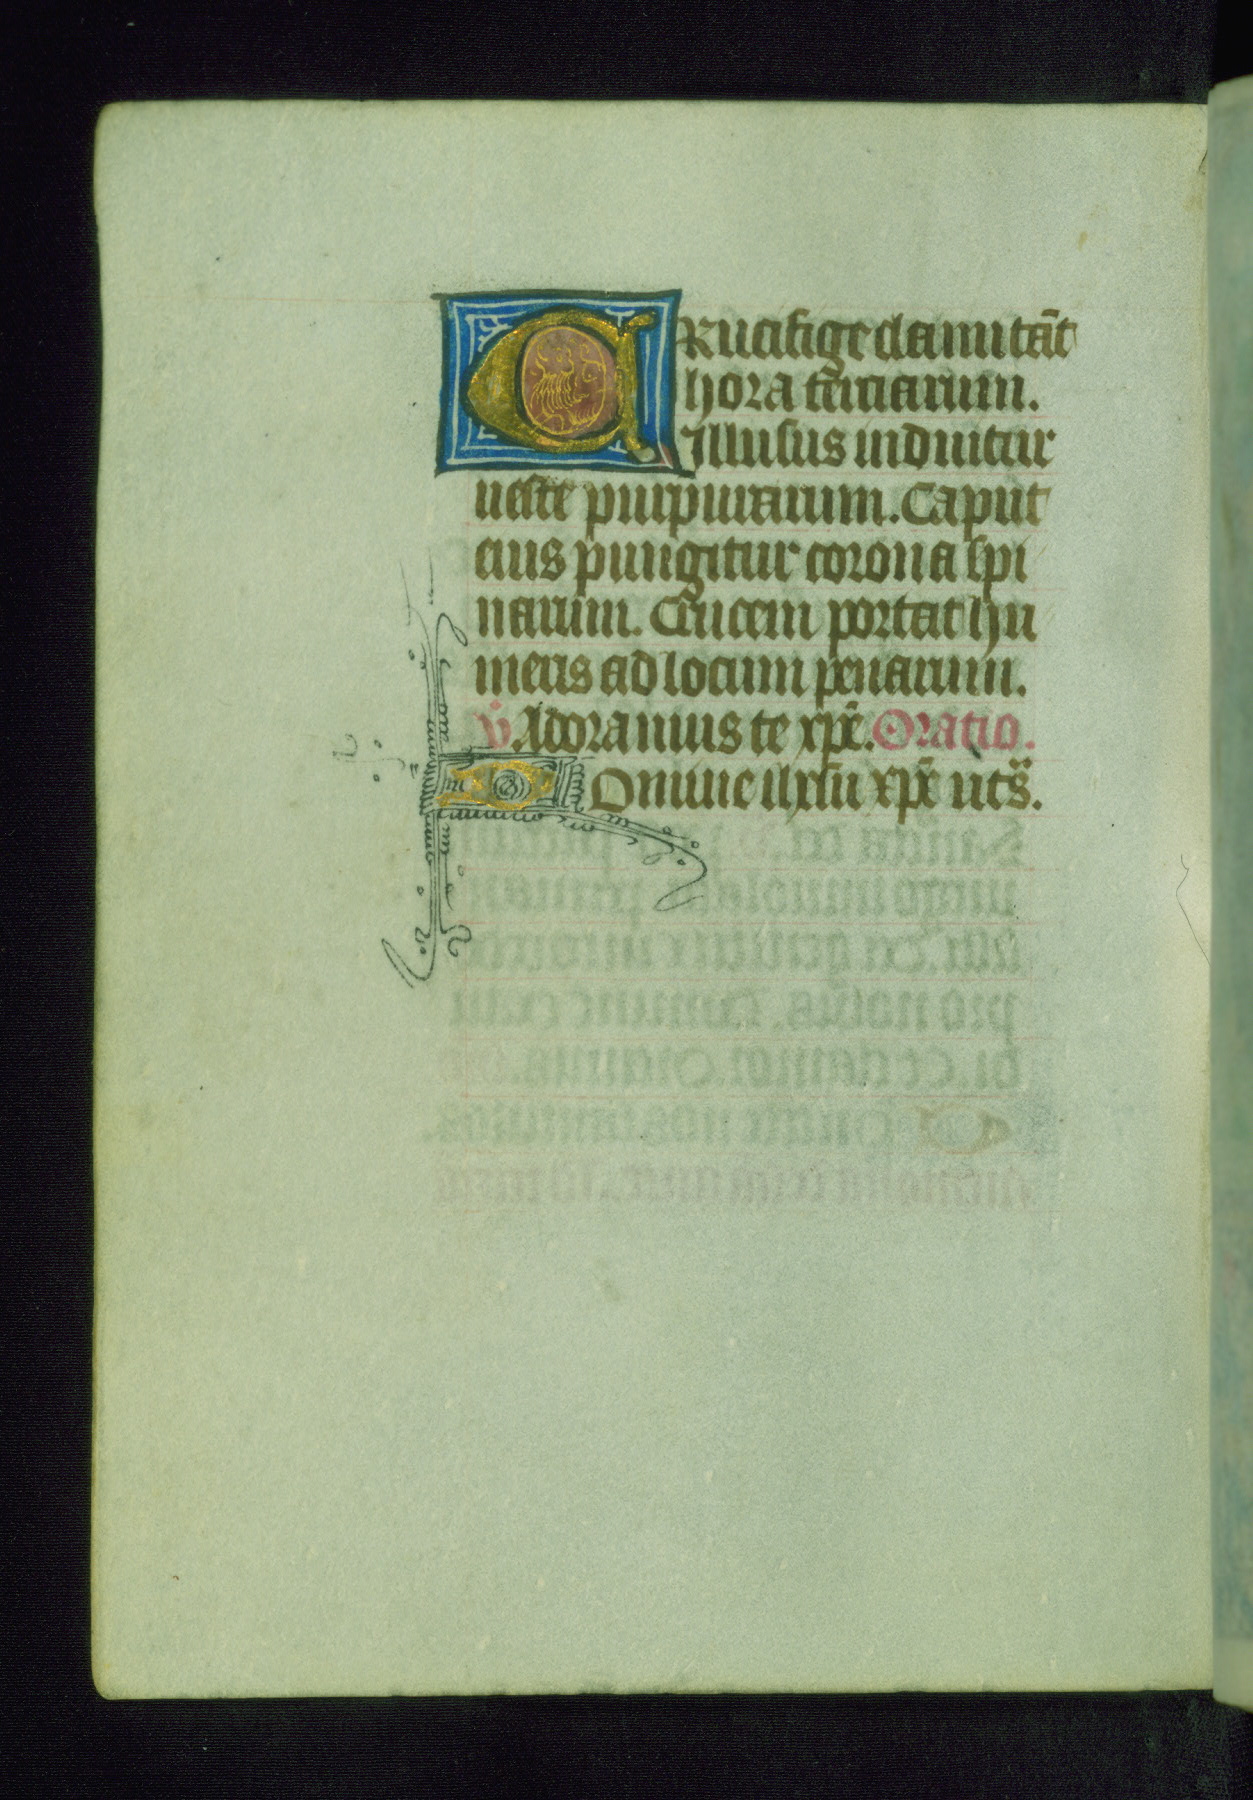 CRucifige clamitāt
hora terciarum.
illusus induitur
ueste purpurarum. Caput
eius pungitur corona spi
narum. Crucem portat hu
meris ad locum penarum.
v̇. Adoramus te xp̄e. Oratio.
Domine ihesu xp̄e ut s̄.